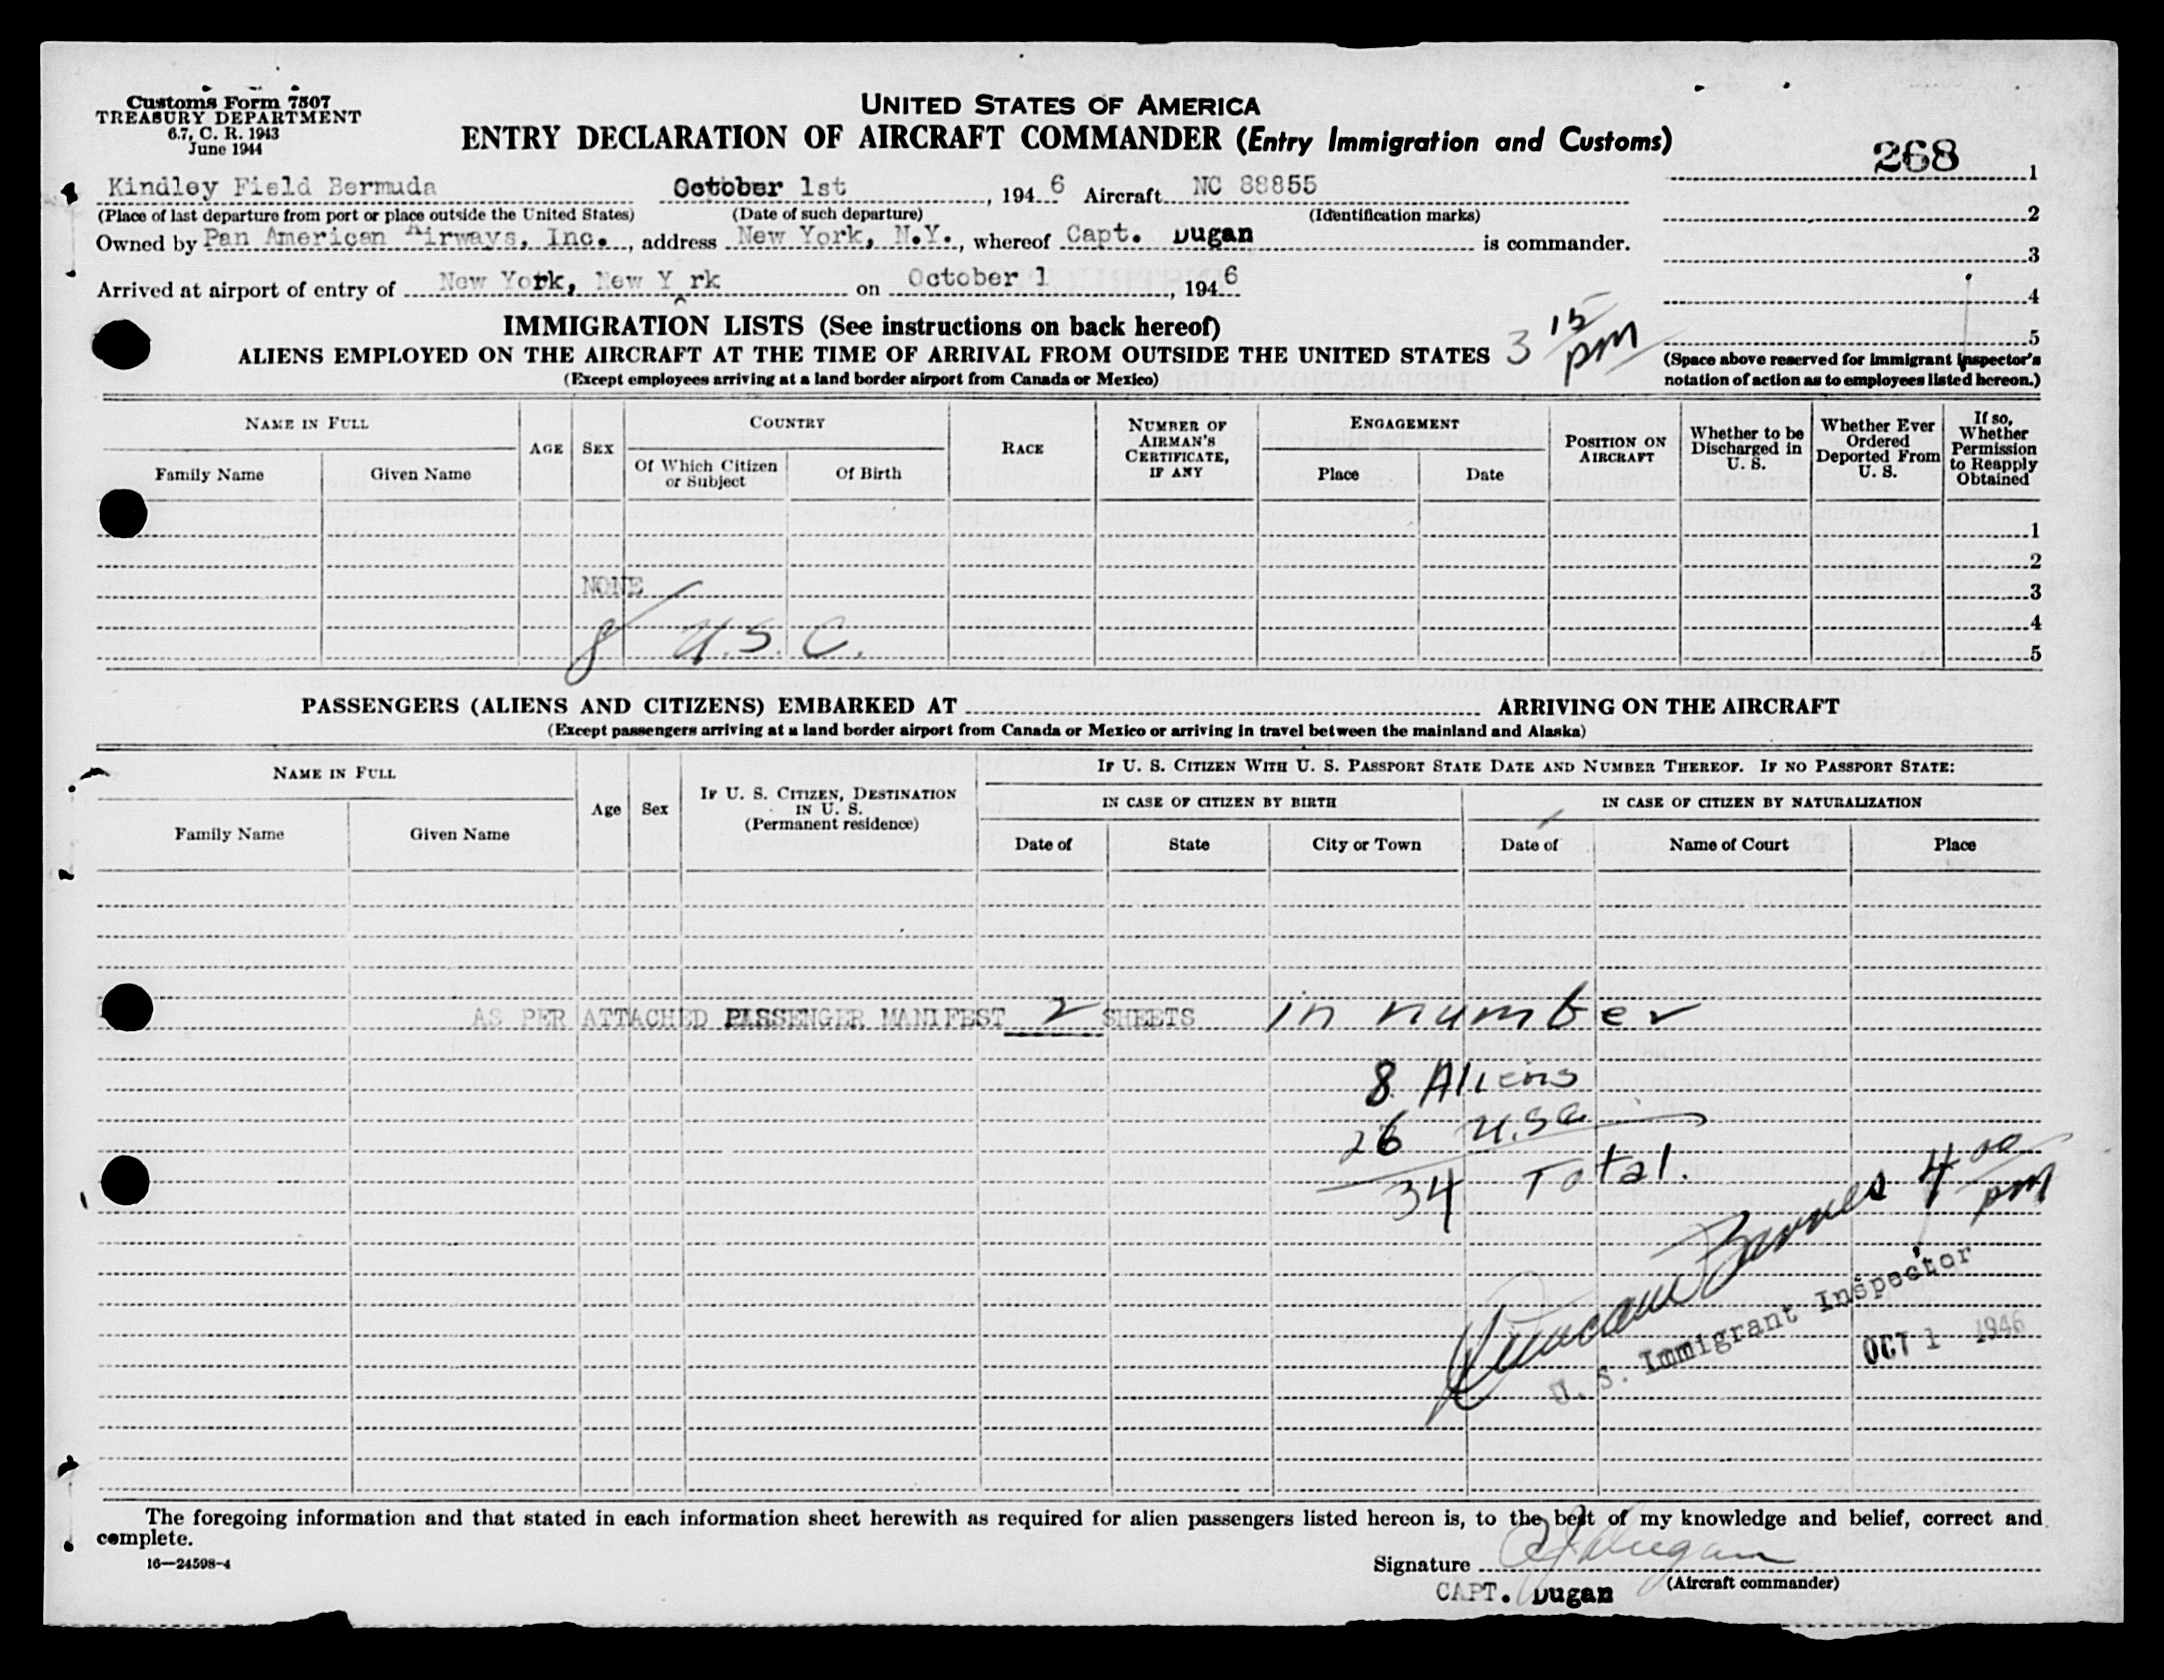 Customs Form 7507
TREASURY DEPARTMENT
6.7, C. R. 1943
June 1944
UNITED STATES OF AMERICA
ENTRY DECLARATION OF AIRCRAFT COMMANDER (Entry Immigration and Customs)
268
1
2
3
4
5
Kindley Field Bermuda October 1st, 1946 Aircraft NC 88855
(Place of last departure from port or place outside the United States) (Date of such departure) (Identification marks)
Owned by Pan American Airways, Inc., address New York, N.Y., whereof Capt. Dugan is commander.
Arrived at airport of entry of New York, New Y rk on October 1, 1946
IMMIGRATION LISTS (See instructions on back hereof)
ALIENS EMPLOYED ON THE AIRCRAFT AT THE TIME OF ARRIVAL FROM OUTSIDE THE UNITED STATES 3 15 pm
(Except employees arriving at a land border airport from Canada or Mexico)
(Space above reserved for immigrant inspector's
notation of action as to employees listed hereon.)
NAME IN FULL
Family Name Given Name
AGE
SEX
COUNTRY
Of Which Citizen or Subject
Of Birth
RACE
NUMBER OF AIRMAN'S CERTIFICATE, IF ANY
ENGAGEMENT
Place Date
POSITION ON AIRCRAFT
Whether to be Discharged in U. S.
Whether Ever Ordered Deported From U. S.
If so, Whether Permission to Reapply Obtained
1
2
NONE 3
4
8 U.S.C. 5
PASSENGERS (ALIENS AND CITIZENS) EMBARKED AT ARRIVING ON THE AIRCRAFT
(Except passengers arriving at a land border airport from Canada or Mexico or arriving in travel between the mainland and Alaska)
NAME IN FULL
Family Name Given Name
Age
Sex
IF U. S. CITIZEN, DESTINATION IN U. S.
(Permanent residence)
IF U. S. CITIZEN WITH U. S. PASSPORT STATE DATE AND NUMBER THEREOF. IF NO PASSPORT STATE:
IN CASE OF CITIZEN BY BIRTH IN CASE OF CITIZEN BY NATURALIZATION
Date of State City or Town Date of Name of Court Place
AS PER ATTACHED PASSENGER MANIFEST 2 SHEETS in number
8 Aliens
26 U.S.C.
34 Total.
Duncan Barnes 4 00 pm
U. S. Immigrant Inspector
OCT 1 1946
The foregoing information and that stated in each information sheet herewith as required for alien passengers listed hereon is, to the best of my knowledge and belief, correct and
complete.
16—24598-4
Signature Dugan
(Aircraft commander)
CAPT. Dugan